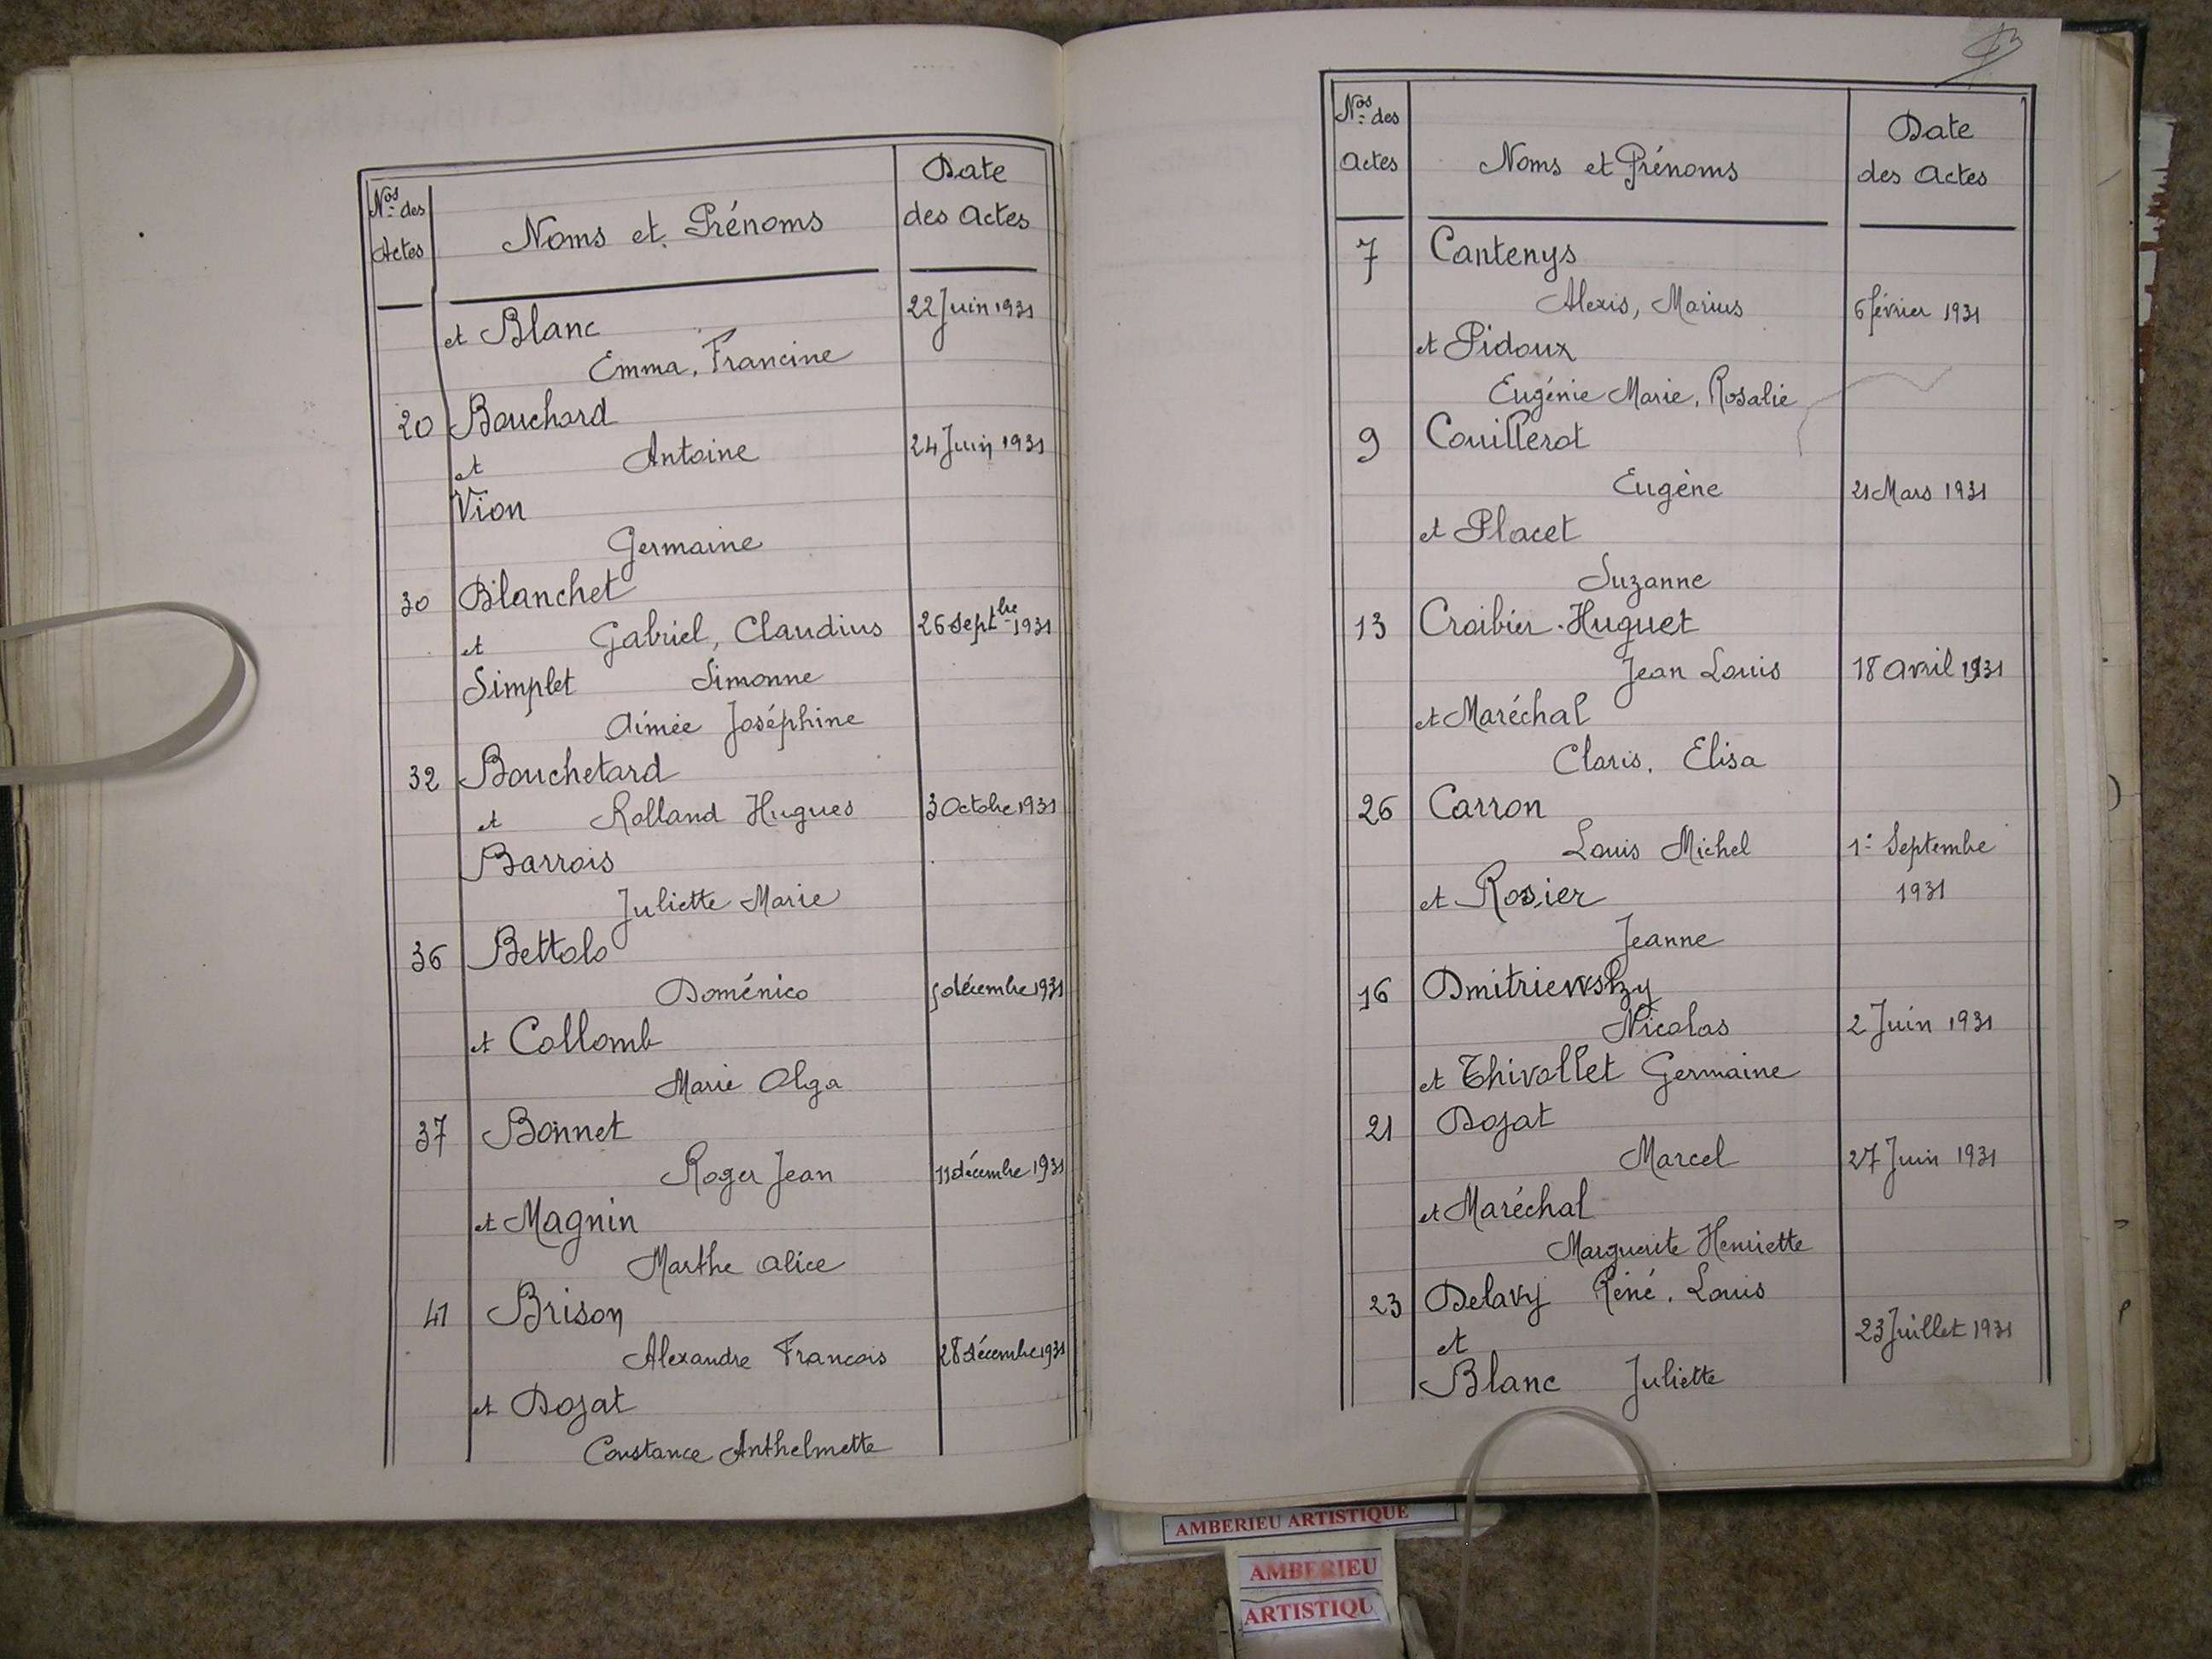 Nos des Actes
Noms et Prénoms
Date des Actes
et Blanc
22 Juin 1931
Emma, Francine
20 Bouchard
et Antoine 24 Juin 1931
Vion
Germaine
30 Blanchet
et Gabriel, Claudius 26 Septbre 1931
Simplet Simonne
Aimée Joséphine
32 Bouchetard
et Rolland Hugues 3 Octobre 1931
Barrois
Juliette Marie
36 Bettolo
Doménico décembre 1931
et Collomb
Marie Olga
37 Bonnet
Roger Jean 11 décembre 1931
et Magnin
Marthe Alice
41 Brison
Alexandre Francois 28 décembre 1931
et Dojat
Constance Anthelmette
Nos des Actes
Noms et Prénoms
Date des Actes
7 Cantenys
Alexis, Marius 6 février 1931
et Pidoux
Eugénie Marie, Rosalie
9 Couillerot
Eugène 21 Mars 1931
et Placet
Suzanne
13 Croibier-Huguet
Jean Louis 18 Avril 1931
et Maréchal
Claris, Elisa
26 Carron
Louis Michel 1er Septembre
et Rosier 1931
Jeanne
16 Dmitriewsky
Nicolas 2 Juin 1931
et Thivollet Germaine
21 Dojat
Marcel 27 Juin 1931
et Maréchal
Marguerite Henriette
23 Delavy Réné, Louis
et 23 Juillet 1931
Blanc Juliette
AMBERIEU ARTISTIQUE
AMBERIEU
ARTISTIQU